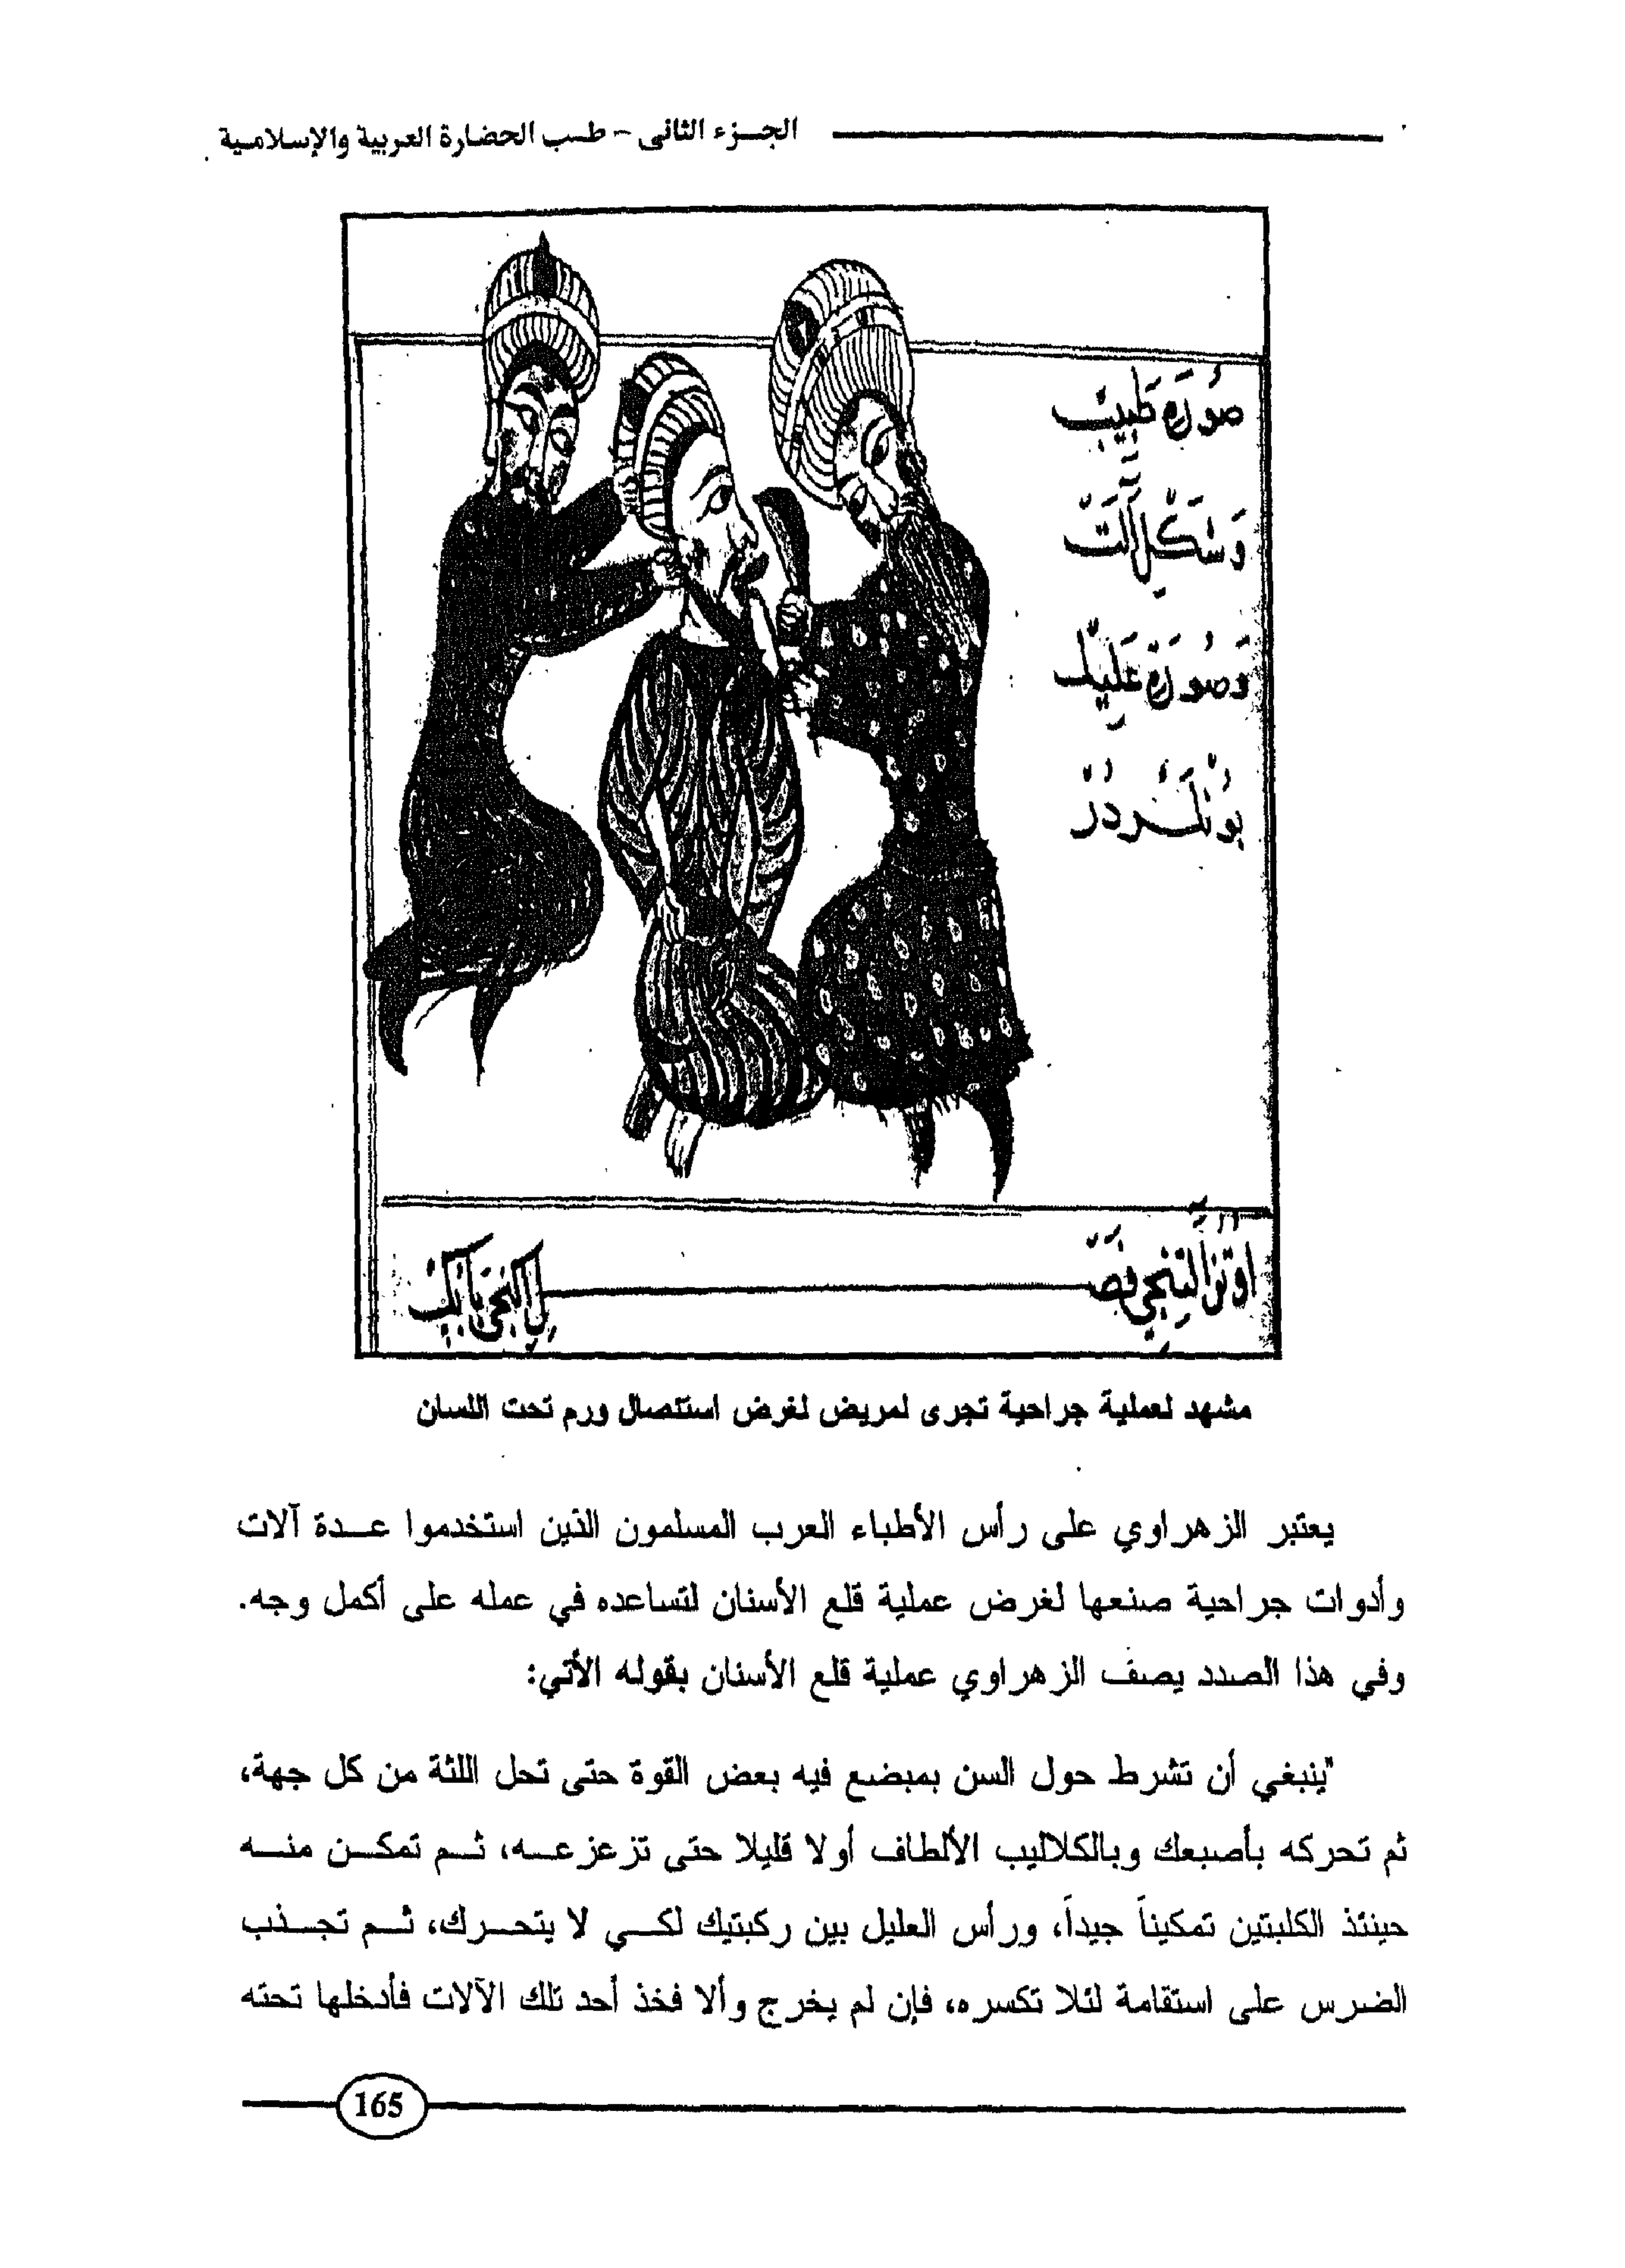 الجزء الثانى - طب الحضارة العربية والإسلامية
صُورَةِ طَبيبْ
وَشَكْلِ آلَتْ
وَصُورَةِ عَلِيلْ
بُونْلَرْدُرْ
مشهد لعملية جراحية تجرى لمريض لغرض استئصال ورم تحت اللسان
يعتبر الزهراوي على رأس الأطباء العرب المسلمون الذين استخدموا عدة آلات
وأدوات جراحية صنعها لغرض عملية قلع الأسنان لتساعده في عمله على أكمل وجه.
وفي هذا الصدد يصف الزهراوي عملية قلع الأسنان بقوله الأتي:
"ينبغي أن تشرط حول السن بمبضع فيه بعض القوة حتى تحل اللثة من كل جهة،
ثم تحركه بأصبعك وبالكلاليب الألطاف أولا قليلا حتى تزعزعه، ثم تمكن منه
حينئذ الكلبتين تمكيناً جيداً، ورأس العليل بين ركبتيك لكي لا يتحرك، ثم تجذب
الضرس على استقامة لئلا تكسره، فإن لم يخرج وألا فخذ أحد تلك الآلات فأدخلها تحته
165